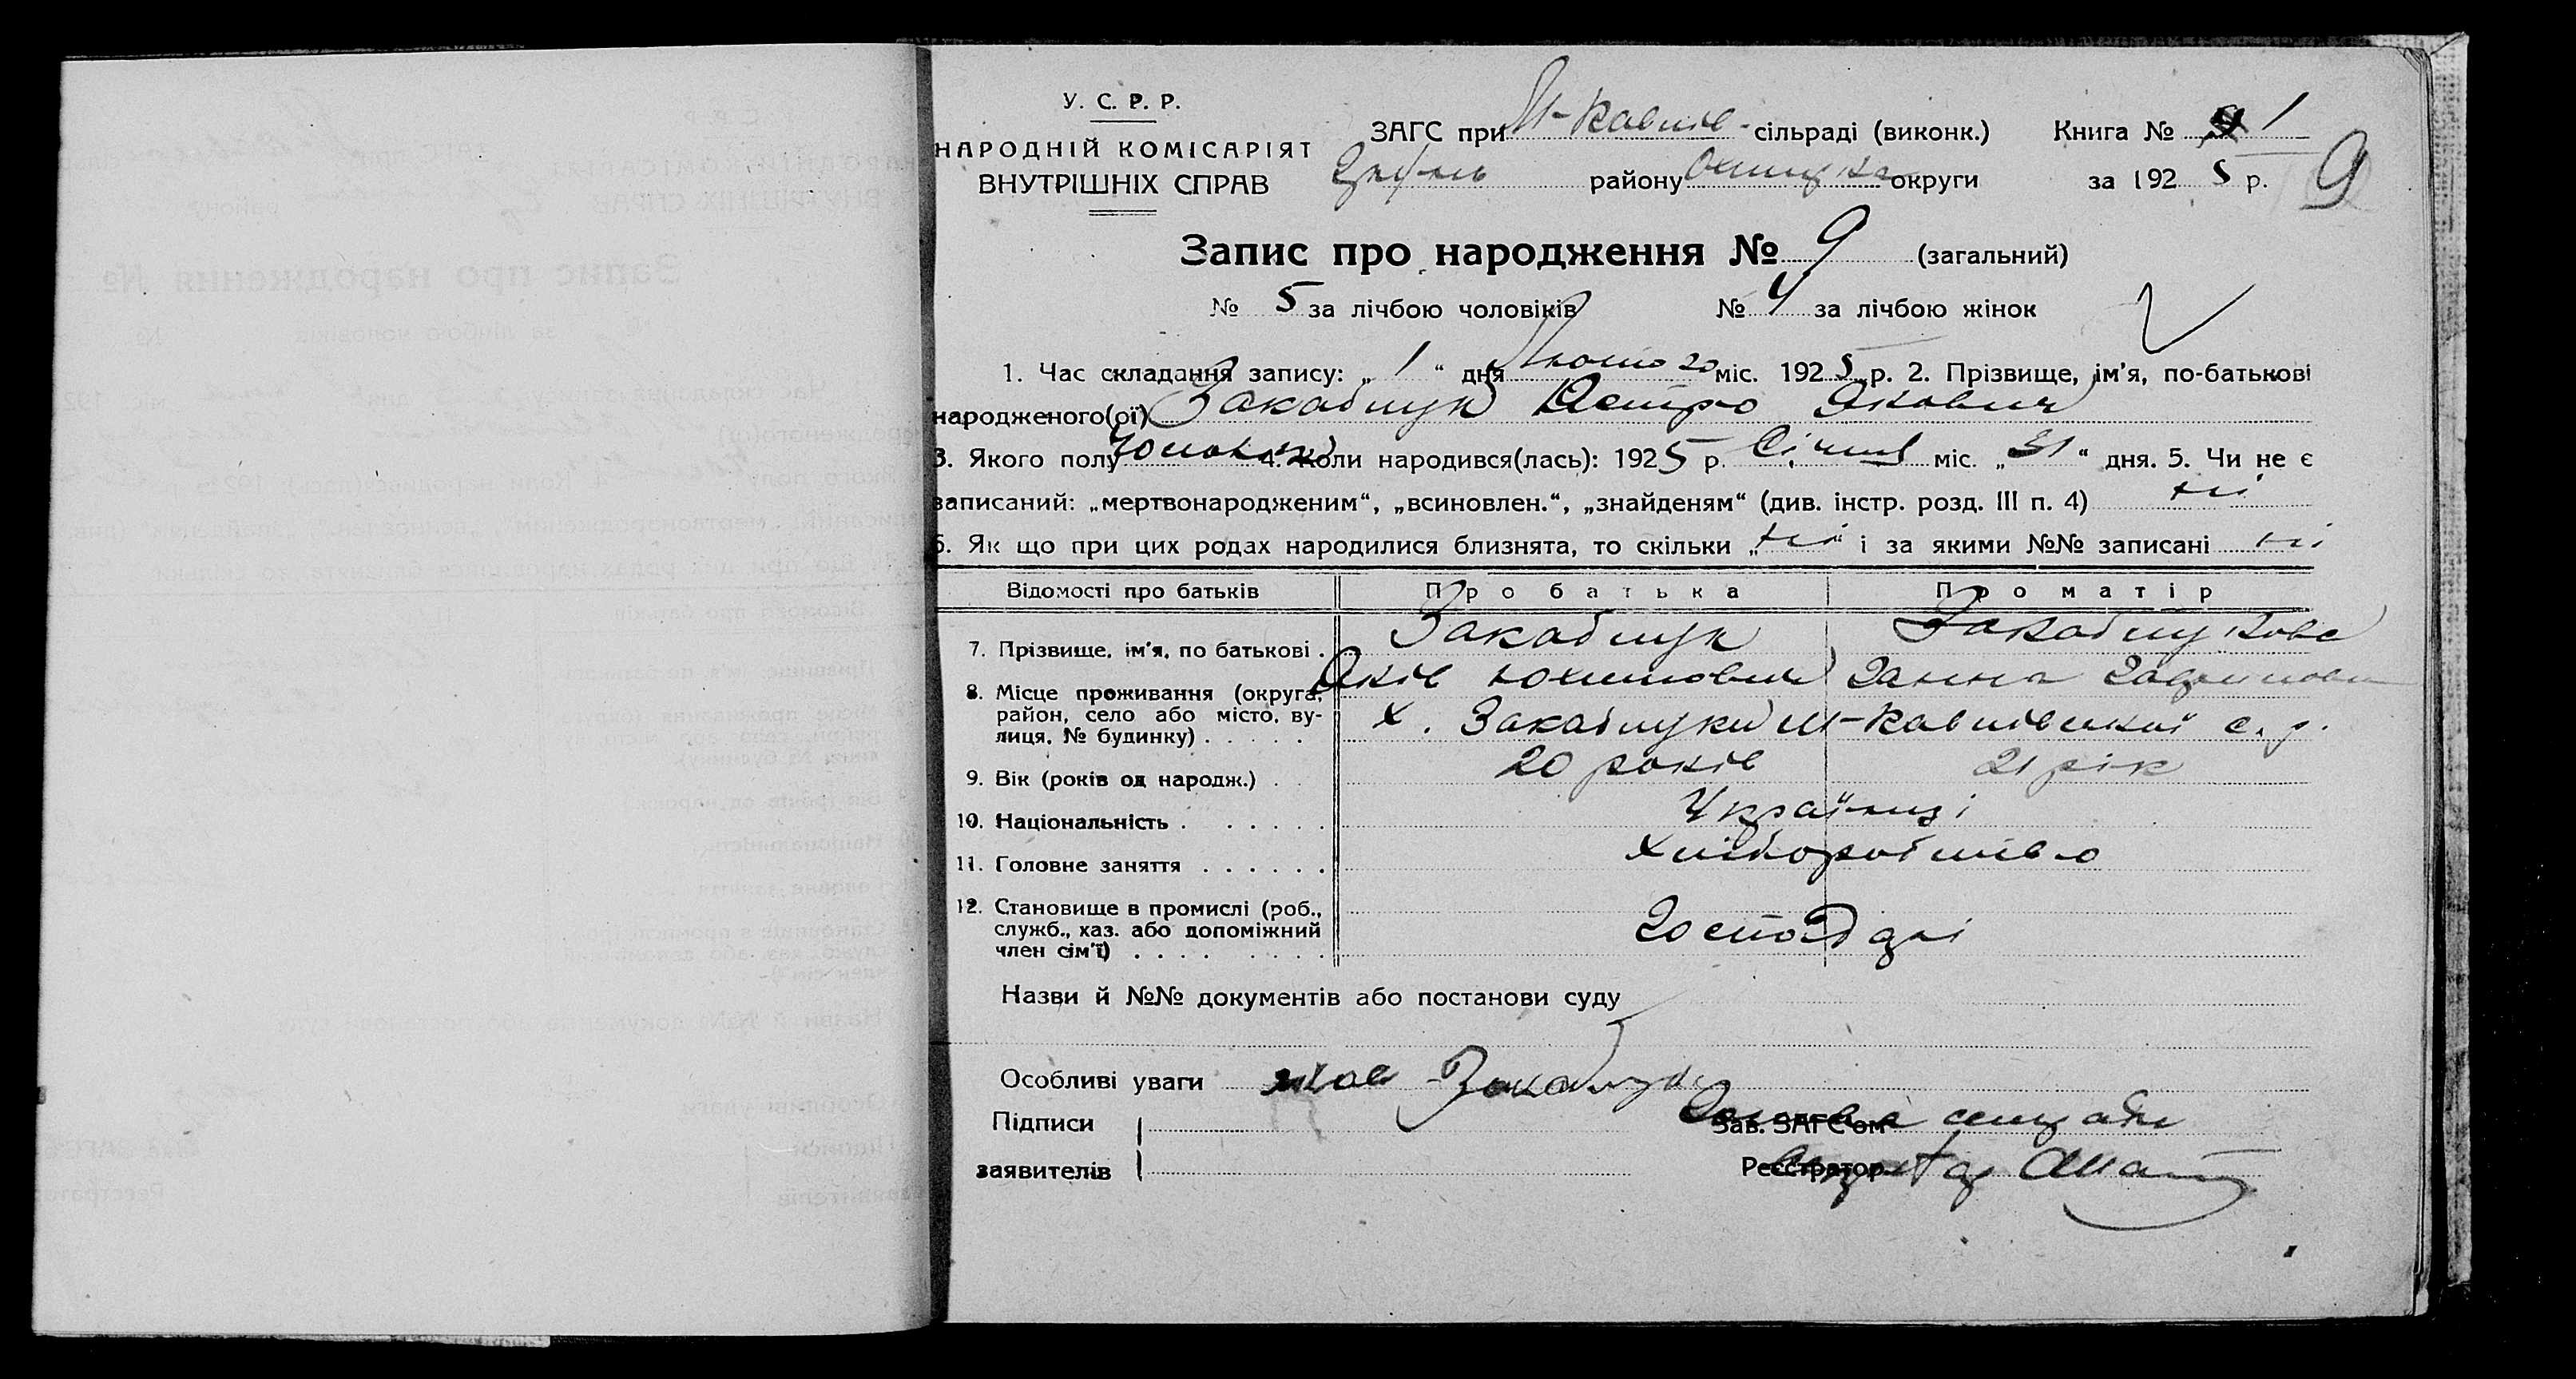 У. С. Р. Р.
НАРОДНІЙ КОМІСАРІЯТ
ВНУТРІШНІХ СПРАВ
ЗАГС при М-Павлів- сільраді (виконк.) Книга № 1
району округи за 1925 р. 9
Запис про народження № 9 (загальний)
№ 5 за лічбою чоловіків № 4 за лічбою жінок
1. Час складання запису: „ 1 “ дня Лютого міс. 1925 р. 2. Прізвище, ім'я, по-батькові
народженого(ої) Закаблук Петро Якович
3. Якого полу 4. Коли народився(лась): 1925 р. Січня міс. „ “ дня. 5. Чи не є
записаний: „мертвонародженим“, „всиновлен.“, „знайденям“ (див. інстр. розд. III п. 4) ні
6. Як що при цих родах народилися близнята, то скільки „ ні “ і за якими №№ записані ні
Відомості про батьків Про батька Про матір
7. Прізвище, ім'я, по батькові . Закаблук Закаблукова
Яків Юхимович Ганна
8. Місце проживання (округа,
район, село або місто, ву-
лиця, № будинку) . . . . . х. Закаблуки М-Павлівської с. р.
9. Вік (років од народж.) . . 20 років 21 рік
10. Національність . . . . . . Українці
11. Головне заняття . . . . . . Хліборобство
12. Становище в промислі (роб.,
служб., хаз. або допоміжний
член сім'ї) . . . . . . . . Господарі
Назви й №№ документів або постанови суду
Особливі уваги Закаблук
Підписи Зав. ЗАГС'ом Голова
заявителів Реєстратор Секретар